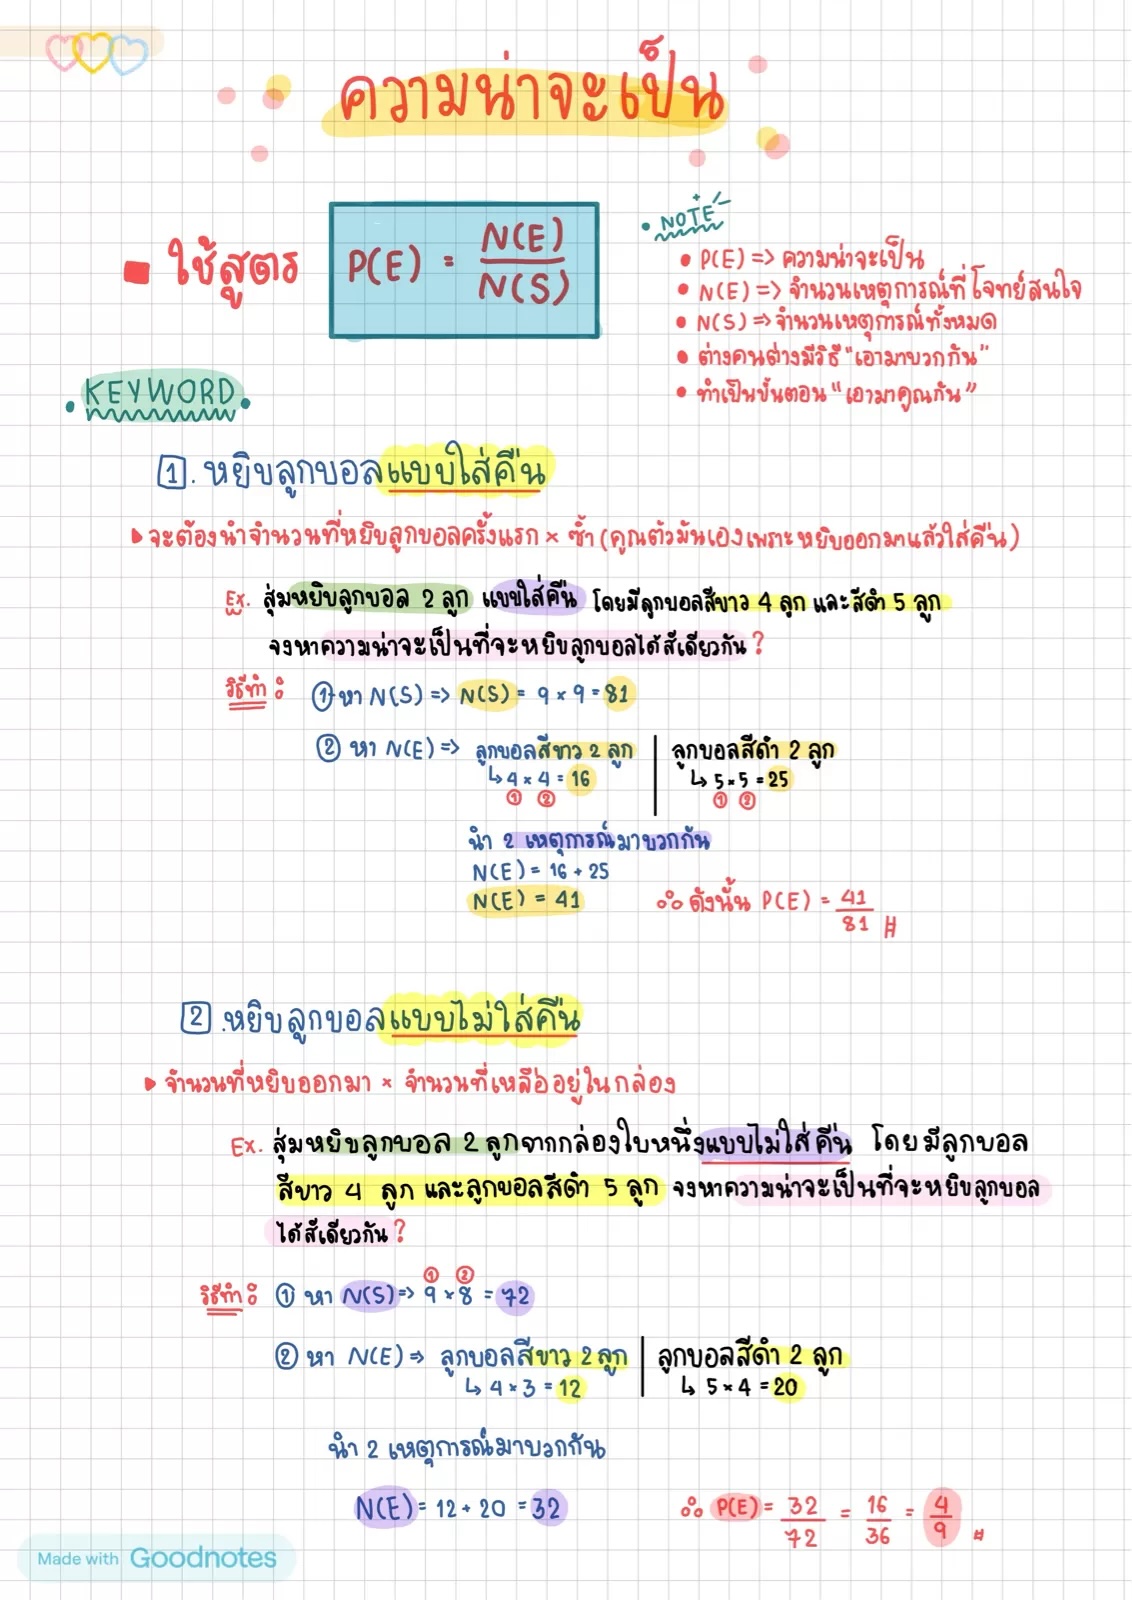 ความน่าจะเป็น
■ ใช้สูตร P(E) = N(E)/N(S)
• NOTE
• P(E) => ความน่าจะเป็น
• N(E) => จำนวนเหตุการณ์ที่โจทย์สนใจ
• N(S) => จำนวนเหตุการณ์ทั้งหมด
• ต่างคนต่างมีวิธี "เอามาบวกกัน"
• ทำเป็นขั้นตอน "เอามาคูณกัน"
• KEYWORD •
1. หยิบลูกบอลแบบใส่คืน
▶ จะต้องนำจำนวนที่หยิบลูกบอลครั้งแรก × ซ้ำ (คูณตัวมันเองเพราะหยิบออกมาแล้วใส่คืน)
Ex. สุ่มหยิบลูกบอล 2 ลูก แบบใส่คืน โดยมีลูกบอลสีขาว 4 ลูก และสีดำ 5 ลูก
จงหาความน่าจะเป็นที่จะหยิบลูกบอลได้สีเดียวกัน ?
วิธีทำ : ① หา N(S) => N(S) = 9 × 9 = 81
② หา N(E) => ลูกบอลสีขาว 2 ลูก | ลูกบอลสีดำ 2 ลูก
↳ 4 × 4 = 16 ↳ 5 × 5 = 25
① ② ① ②
นำ 2 เหตุการณ์มาบวกกัน
N(E) = 16 + 25
N(E) = 41 ∴ ดังนั้น P(E) = 41/81 #
2. หยิบลูกบอลแบบไม่ใส่คืน
▶ จำนวนที่หยิบออกมา × จำนวนที่เหลืออยู่ในกล่อง
Ex. สุ่มหยิบลูกบอล 2 ลูกจากกล่องใบหนึ่งแบบไม่ใส่คืน โดยมีลูกบอล
สีขาว 4 ลูก และลูกบอลสีดำ 5 ลูก จงหาความน่าจะเป็นที่จะหยิบลูกบอล
ได้สีเดียวกัน ?
① ②
วิธีทำ : ① หา N(S) => 9 × 8 = 72
② หา N(E) => ลูกบอลสีขาว 2 ลูก | ลูกบอลสีดำ 2 ลูก
↳ 4 × 3 = 12 ↳ 5 × 4 = 20
นำ 2 เหตุการณ์มาบวกกัน
N(E) = 12 + 20 = 32 ∴ P(E) = 32/72 = 16/36 = 4/9 #
Made with Goodnotes